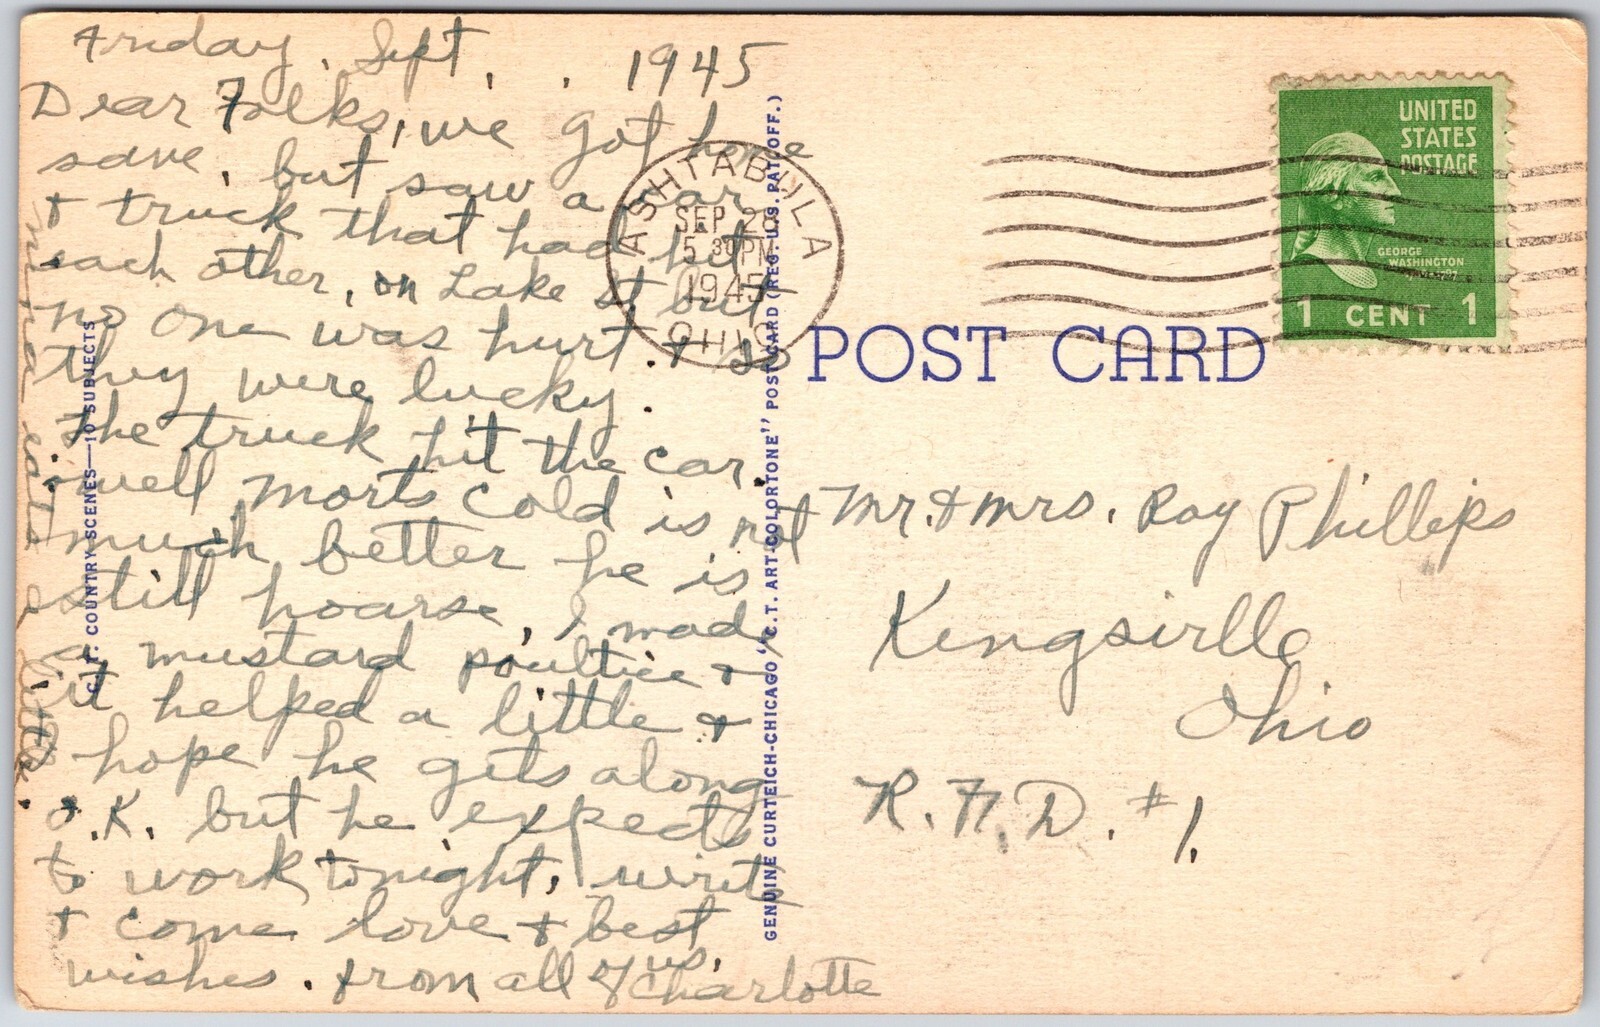 Friday, Sept, . 1945
Dear Folks, we got home
save, but saw a car
& truck that had hit
each other, on Lake St but
no one was hurt. & so
they were lucky.
The truck hit the car.
well Morts cold is not
much better he is
still hoarse, I made
a mustard poultice &
it helped a little &
hope he gets along
O.K. but he expects
to work tonight, write
& come love & best
wishes. from all of us,
Charlotte
eats a little.
C.T. COUNTRY SCENES—10 SUBJECTS
GENUINE CURTEICH-CHICAGO "C.T. ART-COLORTONE" POST CARD (REG. U.S. PAT. OFF.)
ASHTABULA
SEP 2
5 30 PM
1945
OHIO
UNITED
STATES
POSTAGE
GEORGE
WASHINGTON
1 CENT 1
POST CARD
Mr. & Mrs. Ray Phillips
Kingsville
Ohio
R.F.D. #1.